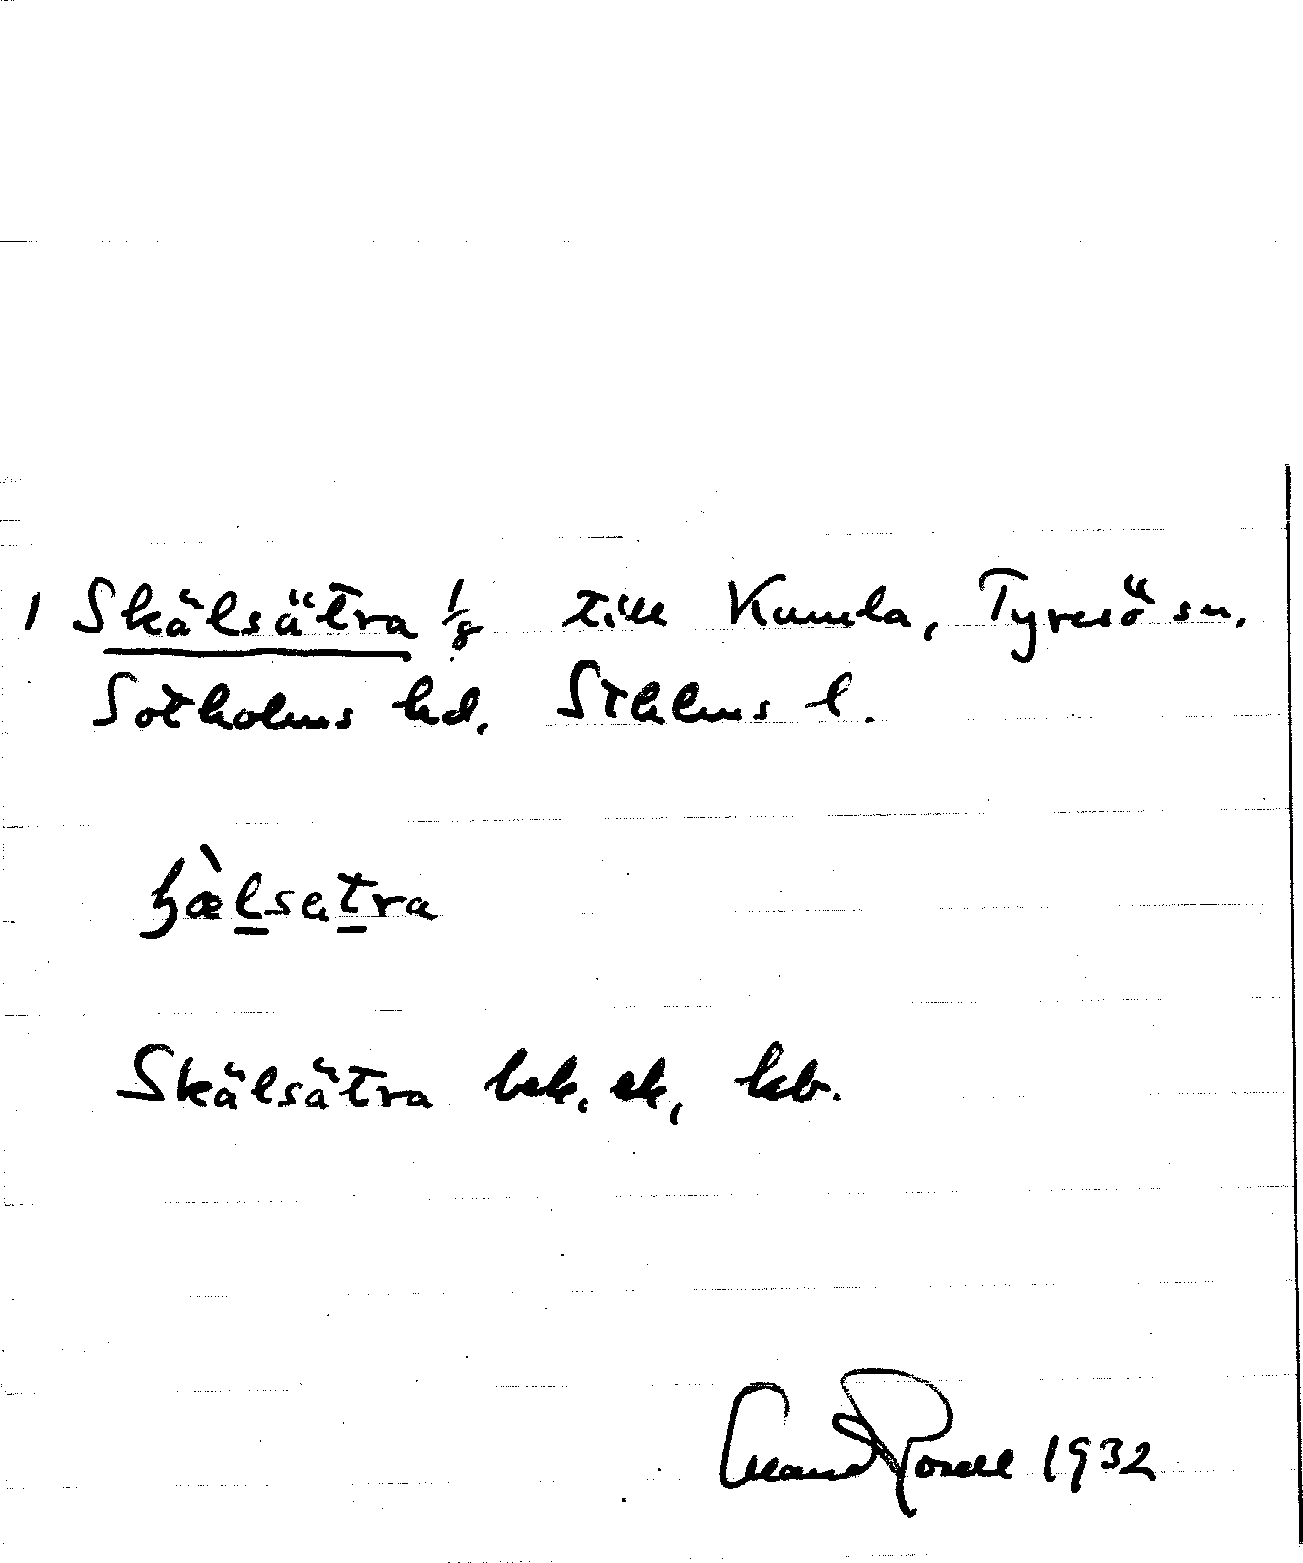 1 Skälsätra 1/8 till Kumla, Tyresö sn.
Sotholms hd. Sthlms l.
ʃæ̀lsatra
Skälsätra bek. ek, kb.
1932